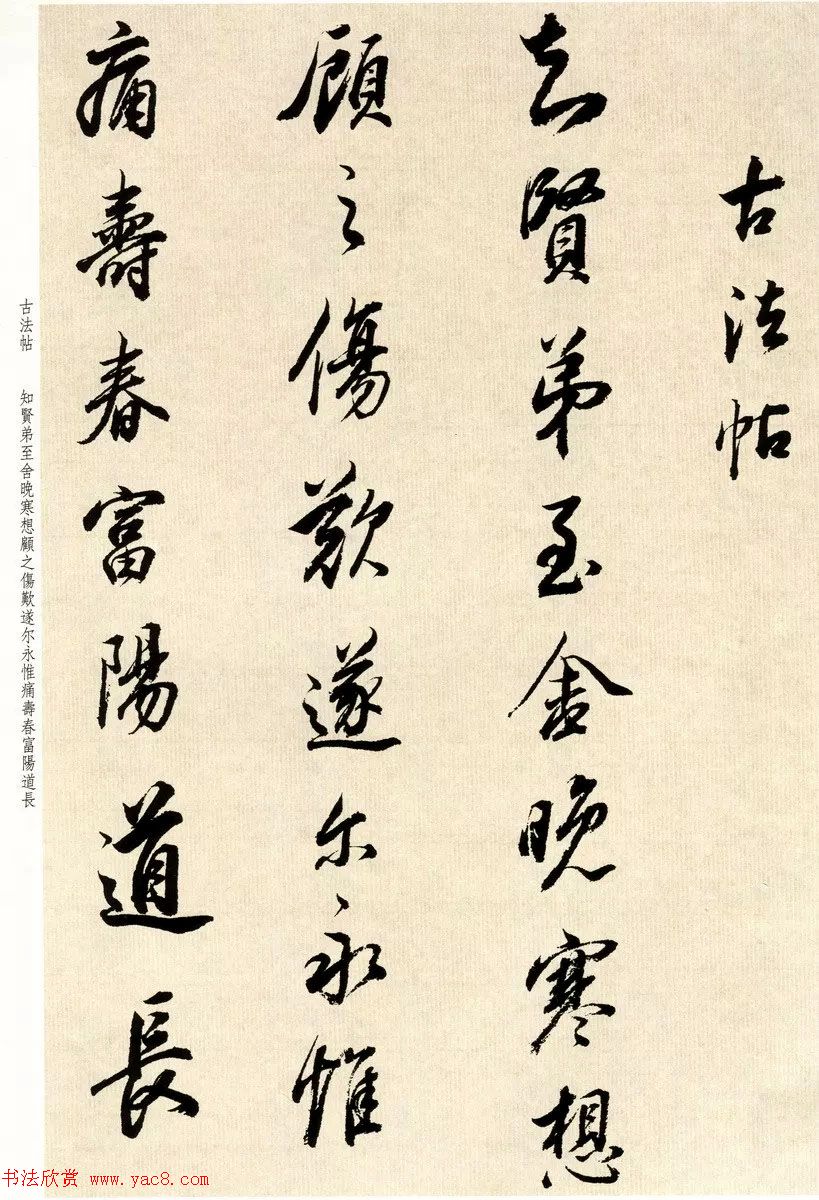 古法帖
知賢弟至舍晚寒想
顧之傷歎遂尔永惟
痛壽春富陽道長
古法帖 知賢弟至舍晚寒想顧之傷歎遂尔永惟痛壽春富陽道長
书法欣赏 www.yac8.com